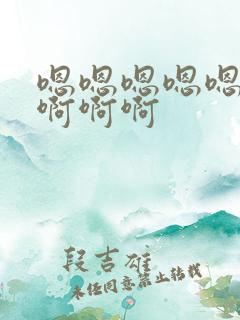 嗯嗯嗯嗯嗯
啊啊啊
段吉雄
未经同意禁止转载